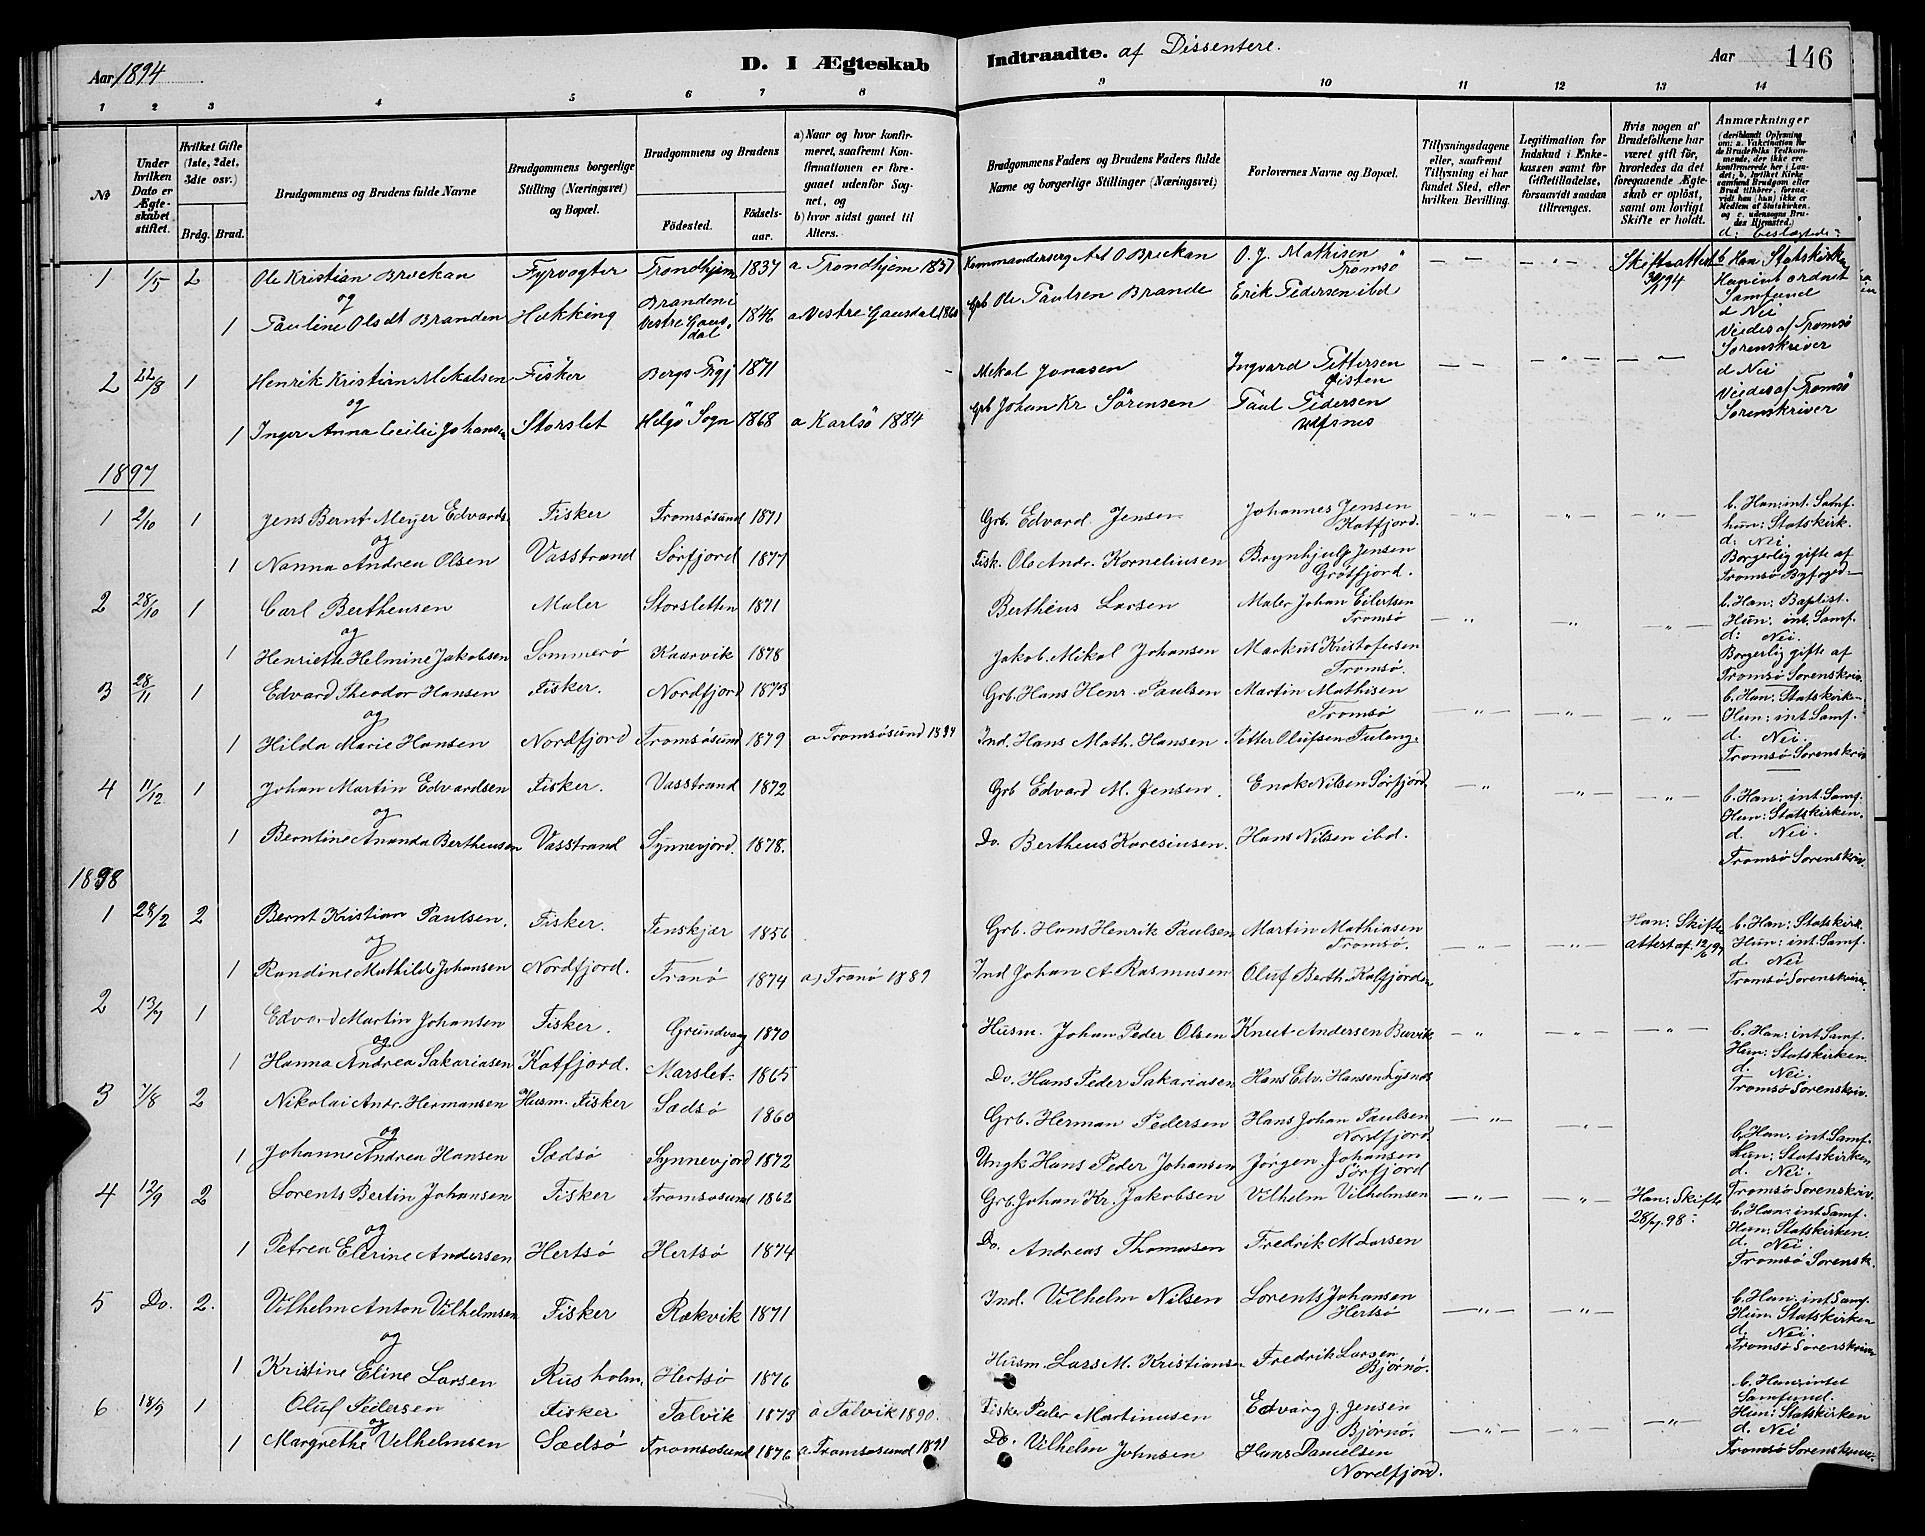 Aar 1894
D. I Ægteskab Indtraadte. af Dissentere.
Aar 146
1 2 3 4 5 6 7 8 9 10 11 12 13 14
No
Under hvilken Dato er Ægteskabet stiftet.
Hvilket Gifte (1ste, 2det, 3die osv.)
Brdg. Brud.
Brudgommens og Brudens fulde Navne
Brudgommens borgerlige Stilling (Næringsvei) og Bopæl.
Brudgommens og Brudens
Fødested. Fødselsaar.
a) Naar og hvor konfirmeret, saafremt Konfirmationen er foregaaet udenfor Sognet, og
b) hvor sidst gaaet til Alters.
Brudgommens Faders og Brudens Faders fulde Navne og borgerlige Stillinger (Næringsvei)
Forlovernes Navne og Bopæl.
Tillysningsdagene eller, saafremt Tillysning ei har fundet Sted, efter hvilken Bevilling.
Legitimation for Indskud i Enkekassen samt for Giftetilladelse, forsaavidt saadan tiltrænges.
Hvis nogen af Brudefolkene har været gift før, hvorledes da det foregaaende Ægteskab er opløst, samt om lovligt Skifte er holdt.
Anmærkninger (deriblandt Oplysning om: a. Vaccination for de Brudefolks Vedkommende, der ikke ere konfirmerede her i Landet; b. hvilket Kirkesamfund Brudgom eller Brud tilhører, forsavidt han (hun) ikke er Medlem af Statskirken, og c. udensogns Brudes Hjemsted.)
d: beslægtede:
1 1/5 2 Ole Kristian Brækan Fyrvogter Trondhjem 1837 a Trondhjem 1851 O. J. Mathisen Tromsø — " — — " — Skifteattest 30/ 94 b Han: Statskirk
og
1 Pauline Olsdt Branden Hækking Branden i Vestre Gausdal 1846 a Vestre Gausdal Grb Ole Paulsen Brande Erik Pedersen ibd Hun int ordnet Samfund
d Nei
Viedes af Tromsø Sorenskriver
2 22/8 1 Henrik Kristian Mikalsen Fisker Bergs Prgj 1871 Mikal Jonasen Ingvard Pettersen — " — — " — — " — d Nei
og
1 Inger Anna Cecilie Johansen Storslet Helgø Sogn 1868 a Karlsø 1884 Grb Johan Kr Sørensen Paul Pedersen Viedes af Tromsø Sorenskriver
1897
1 2/10 1 Jens Bernt Meyer Edvards. Fisker Tromsøsund 1871 Grb. Edvard Jensen Johannes Jensen Katfjord. — " — — " — — " — b. Han: int. Samf. hun: Statskirk.
og
1 Nanna Andrea Olsen Vasstrand Sørfjord 1877 Fisk. Ole Andr. Korneliusen Brynhjulf Jensen Grøtfjord. d: Nei. Borgerlig gifte af Tromsø Byfoged—
2 28/10 1 Carl Bertheusen Maler Storsletten 1871 Bertheus Larsen Maler Johan Eilertsen Tromsø — " — — " — — " — b. Han: Baptist. Hun: int. Samf.
og
1 Henriette Helmine Jakobsen Sommerø Kaarvik 1878 Jakob Mikal Johansen Markus Kristofersen Tromsø. d: Nei. Borgerlig gifte af Tromsø Sorenskriv.
3 28/11 1 Edvard Theodor Hansen Fisker. Nordfjord 1873 Grb. Hans Henr. Paulsen Martin Mathisen Tromsø — " — — " — — " — b. Han: Statskirken Hun: int Samf.
og
1 Hilda Marie Hansen Nordfjord Tromsøsund 1879 a Tromsøsund 1894 Ind. Hans Math. Hansen Petter Olufsen d. Nei. Tromsø Sorenskriv
4 11/12 1 Johan Martin Edvardsen Fisker. Vasstrand 1872 Grb Edvard M. Jensen. Enok Nilsen Sørfjord — " — — " — — " — b. Han: int. Samf. Hun: Statskirken.
og
1 Berntine Ananda Bertheusen Vasstrand Synnevjord. 1878. Do. Bertheus Karesiusen. Hans Nilsen ibd. d. Nei. Tromsø Sorenskriv.
1898
1 28/2 2 Bernt Kristian Paulsen. Fisker. Tenskjær 1856 Grb. Hans Henrik Paulsen Martin Mathiasen Tromsø. — " — — " — Han: Skifteattest af. 12/ 97 b. Han: Statskirk. Hun: int. Samf.
og
1 Randine Mathilde Johansen Nordfjord. Tranø 1874 a) Tranø 1889 Ind Johan A. Rasmusen Oluf Berth. Kalfjorden d. Nei Tromsø Sorenskriver.
2 13/7 1 Edvard Martin Johansen Fisker. Grundvaag 1870 Husm. Johan Peder Olsen Knut Andersen Buvik — " — — " — — " — b. Han: int Samf. Hun: Statskirken.
og
1 Hanna Andrea Sakariasen Katfjord. Marslet. 1865 Do. Hans Peder Sakariasen Hans Edv. Hansen Lysnes d. Nei. Tromsø Sorenskriv.
3 7/8 2 Nikolai Andr. Hermansen Husm. Fisker Sædsø 1860 Grb. Herman Pedersen Hans Johan Paulsen Nordfjord. — " — — " — b. Han. int. Samf. Hun: Statskirken
og
1 Johanne Andrea Hansen Sædsø Synnevjord 1872 Ungk Hans Peder Johansen Jørgen Johansen Sørfjord d. Nei. Tromsø Sorenskriv.
4 12/9 2 Lorents Bertin Johansen Fisker Tromsøsund 1862 Grb. Johan Kr. Jakobsen Vilhelm Vilhelmsen — " — — " — Han: Skifte 28/ 98: b. Han: int Samf. Hun: Statskirken.
og
1 Petrea Elerine Andersen Hertsø Hertsø 1874 Do. Andreas Thomasen Fredrik M Larsen d. Nei. Tromsø Sorensk.
5 Do. 2. Vilhelm Anton Vilhelmsen Fisker Rækvik 1871 Ind. Vilhelm Nilsen Lorents Johansen Hertsø — " — — " — b. Han: int Samf. Hun: Statskirken
og
1 Kristine Eline Larsen Rusholm. Hertsø 1876 Husm. Lars M. Kristiansen Fredrik Larsen Bjørnø. d. Nei. Tromsø Sorenskriver
6 18/9 1 Oluf Pedersen Fisker Talvik 1873 a Talvik 1890. Fisker Peder Martinusen Edvarg J. Jensen Bjørnø. — " — — " — — " — b. Han: intet Samfund. Hun: Statskirken
og
1 Margrethe Vilhelmsen Sædsø Tromsøsund 1876 a. Tromsøsund 1891 Do. Vilhelm Johnsen Hans Danielsen Nordfjord. d. Nei Tromsø Sorenskriver.